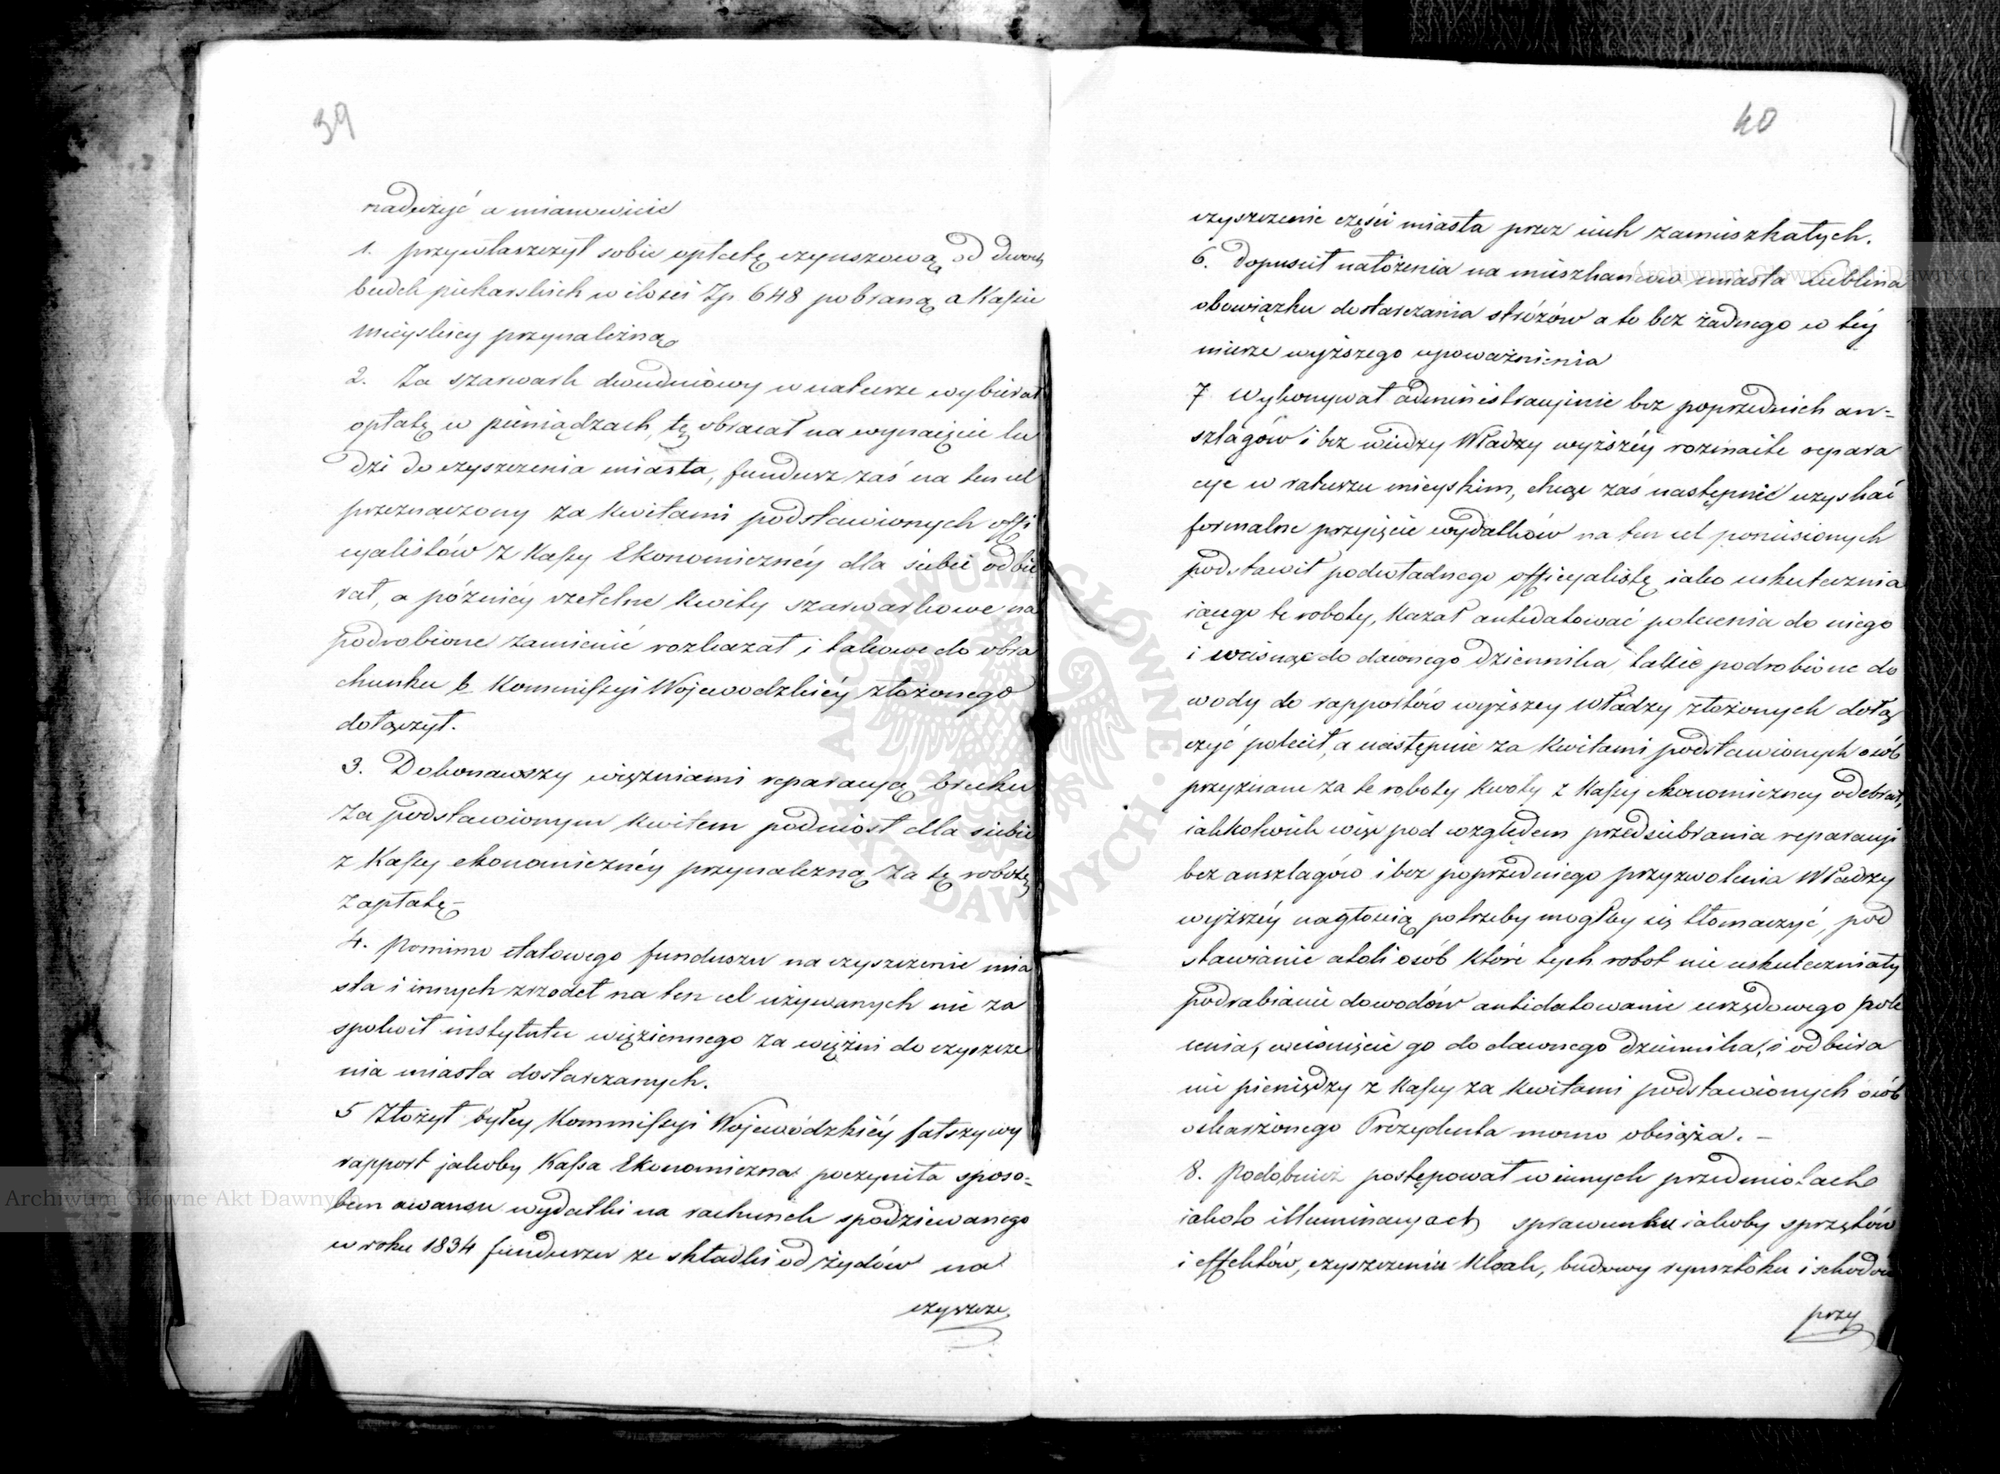 39
nadużyć a mianowicie
1. przywłaszczył sobie opłatę czynszową od dwóch
budek piekarskich w ilości Zp. 648 pobraną a Kassie
Mieyskiey przynależną
2. Za szarwark dwudniowy w naturze wybierał
opłatę w pieniądzach, tę obracał na wynaięcie lu
dzi do czyszczenia miasta, fundusz zaś na ten cel
przeznaczony za kwitami podstawionych offi
cyalistów z Kassy Ekonomicznéy dla siebie odbie
rał, a późniéy rzetelne kwity szarwarkowe na
podrobione zamienić rozkazał i takowe do obra
chunku b. Kommissyi Woiewodzkiéy złożonego
dołączył.
3. Dokonawszy więźniami reparacyą bruku
za podstawionym kwitem podniósł dla siebie
z Kassy ekonomicznéy przynalezną za tę robotę
zapłatę –
4. Pomimo etatowego funduszu na czyszczenie mia
sta i innych zrzodeł na ten cel używanych nie za
spokoił instytutu więziennego za więźni do czyszcze
nia miasta dostarczanych.
5 Złożył byłey Kommissyi Wojewódzkiéy fałszywy
rapport jakoby Kassa Ekonomiczna poczyniła sposo=
bem awansu wydatki na rachunek spodziewanego
w roku 1834 funduszu ze składki od żydów na
czyszcze
40
czyszczenie części miasta przez nich zamieszkałych.
6. Dopuścił nałożenia na mieszkańców miasta Lublina
obowiązku dostarczania stróżów a to bez żadnego w téy
mierze wyższego upoważnienia
7 Wykonywał administracyjnie bez poprzednich an=
szlagów i bez wiedzy Władzy wyższéy rozmaite repara
cye w ratuszu mieyskim, chcąc zaś następnie uzyskać
formalne przyięcie wydatków na ten cel poniesionych
podstawił podwładnego officyalistę iako uskutecznia
iącego te roboty, kazał antidatować polecenia do niego
i wcisnąć do dawnego dziennika takie podrobione do
wody do rapportów wyższey Władzy złożonych dołą
czyć polecił, a następnie za kwitami podstawionych osób
przyznane za te roboty kwoty z Kassy ekonomiczney odebrał,
iakkolwiek więc pod względem przedsiebrania reparacyi
bez anszlagów i bez poprzedniego przyzwolenia Władzy
wyższéy nagłością potrzeby mogłby się tłomaczyć, pod
stawianie atoli osób które tych robot nie uskuteczniały
podrabianie dowodów antidatowanie urzędowego pole
cenia, wciśnięcie go do dawnego dziennika, i odbiera
nie pieniędzy z Kassy za kwitami podstawionych osób
oskarżonego Prezydenta mocno obciąża. –
8. Podobnież postępował w innych przedmiotach
iakoto illuminacyach sprawunku iakoby sprzętów
i effektów, czyszczeniu Kloak, budowy rynsztoku i schodów
przy
Archiwum Główne Akt Dawnych
Archiwum Główne Akt Dawnych
ARCHIWUM GŁÓWNE AKT DAWNYCH